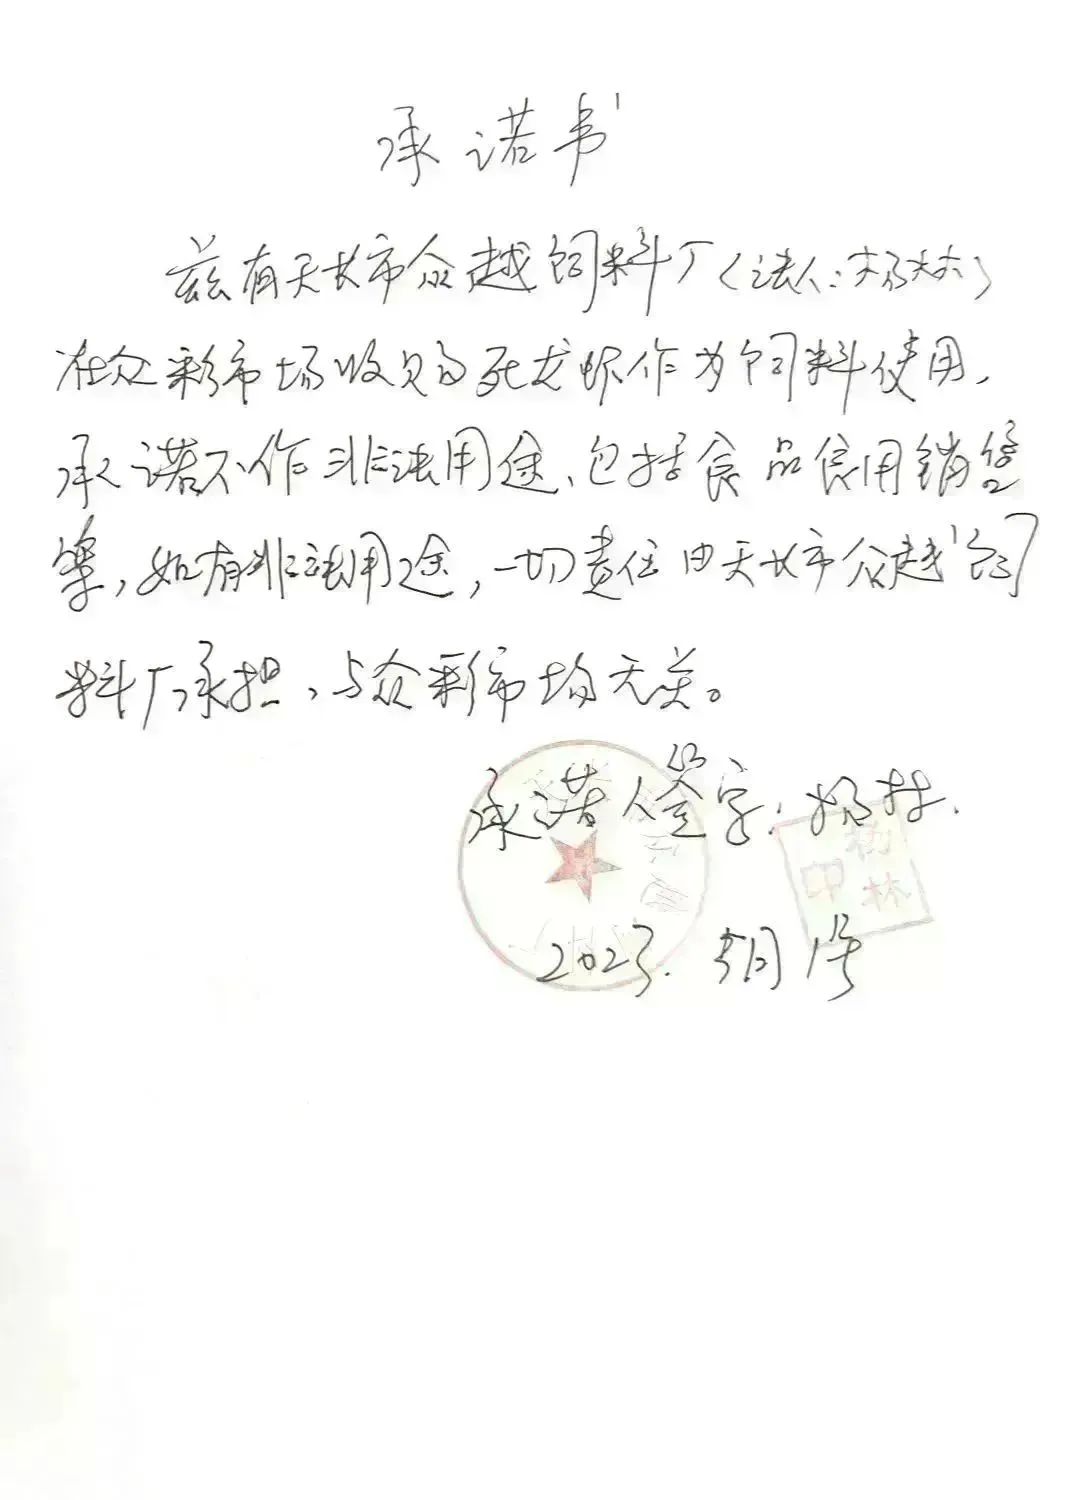 承诺书
兹有天长市众越饲料厂(法人:杨林)
在众彩市场收购的死龙虾作为饲料使用,
承诺不作非法用途、包括食品食用销售
等,如有非法用途,一切责任由天长市众越饲
料厂承担,与众彩市场无关。
承诺人签字:杨林.
杨林
印
2023.5月1号